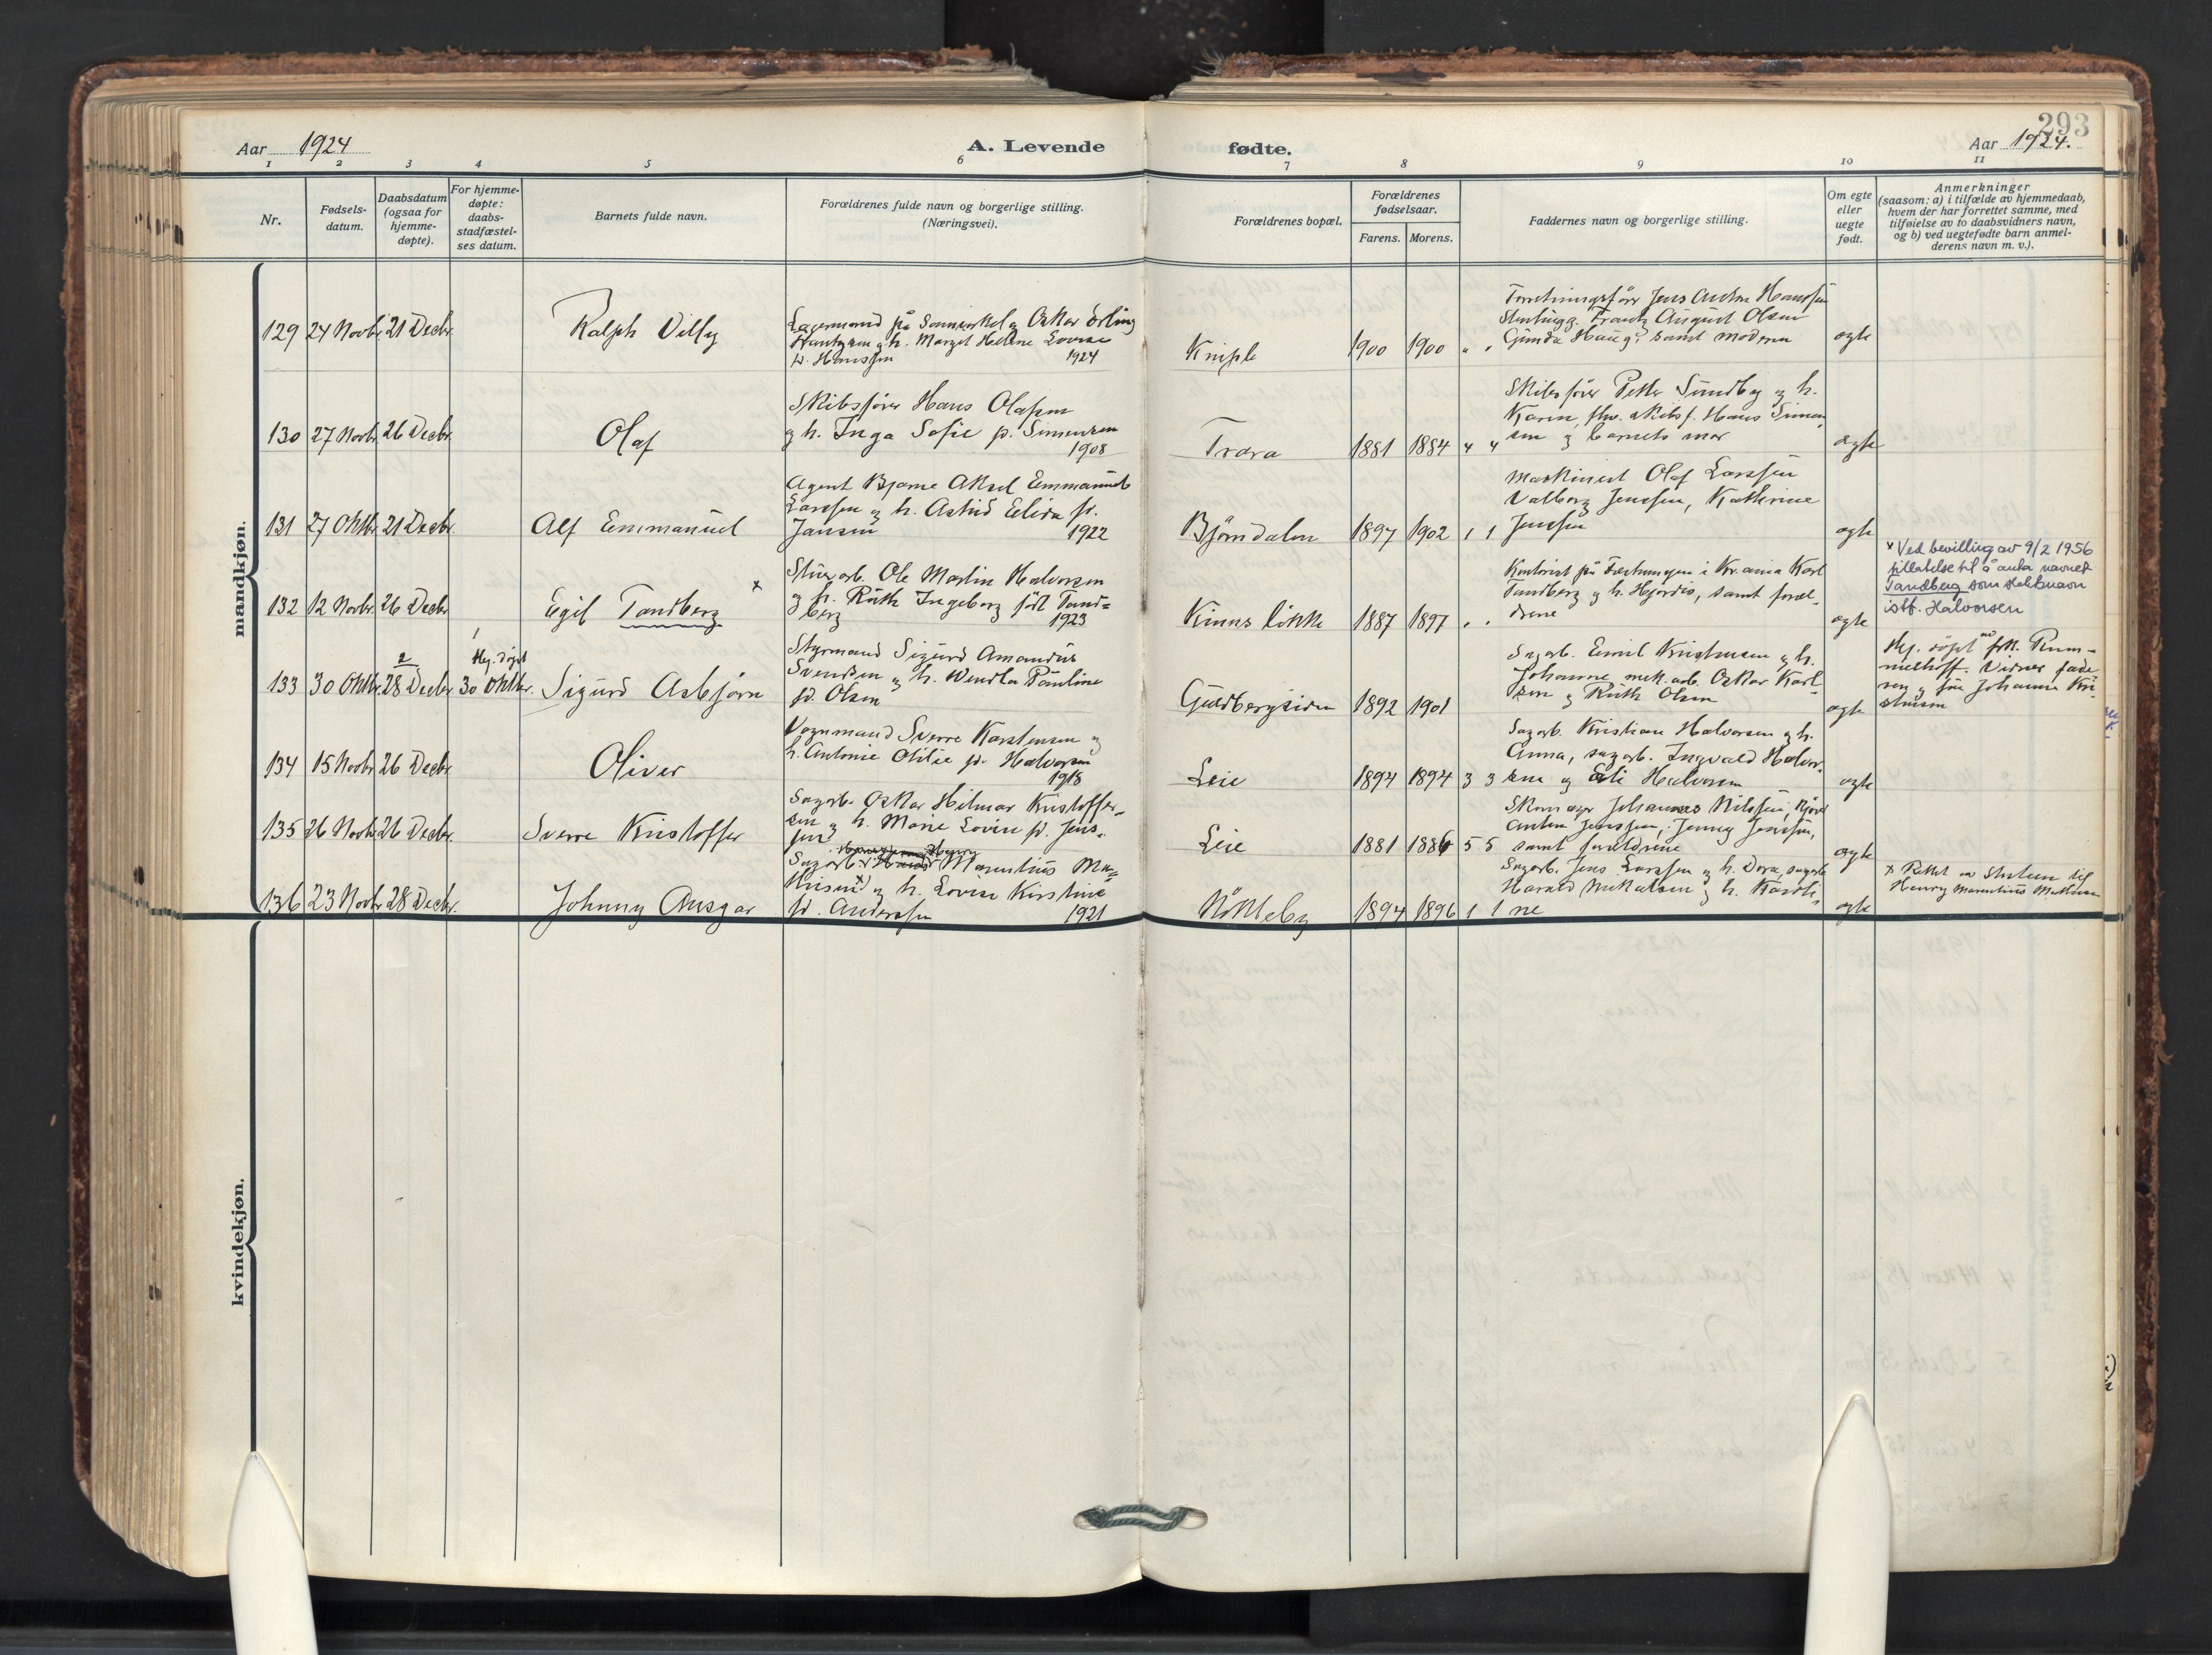 293
Aar 1924
A. Levende
fødte.
Aar 1924.
1 2 3 4 5 6 7 8 9 10 11
Nr.
Fødsels-
datum.
Daabsdatum
(ogsaa for
hjemme-
døpte).
For hjemme-
døpte:
daabs-
stadfæstel-
ses datum.
Barnets fulde navn.
Forældrenes fulde navn og borgerlige stilling.
(Næringsvei).
Forældrenes bopæl.
Forældrenes
fødselsaar.
Farens. Morens.
Faddernes navn og borgerlige stilling.
Om egte
eller
uegte
født.
Anmerkninger
(saasom: a) i tilfælde av hjemmedaab,
hvem der har forrettet samme, med
tilføielse av to daabsvidners navn,
og b) ved uegtefødte barn anmel-
derens navn m. v.).
mandkjøn.
129 24 Novbr. 21 Decbr.
Ralph Villy
Lagermand på Oskar Erling
og h. Margit Helene Lovise
f. Hanssen 1924
Kniple
1900 1900 " "
Jens Anton Hanssen
Frantz August Olsen
Gunda Haug, samt moderen
ægte
130 27 Novbr. 26 Decbr.
Olaf
Skibsfører Hans Olafsen
og h. Inga Sofie f. Simensen
1908
Trara
1881 1884 4 4
Skibsfører Petter Sundby og h.
Karin, skibsf. Hans Simen-
sen og barnets mor
ægte
131 27 Oktbr. 21 Decbr.
Alf Emmanuel
Agent Bjarne Aksel Emmanuel
Larssen og h. Astrid Elida f.
Jansen 1922
Bjørndalen
1897 1902 1 1
Maskinist Olaf Larssen
Valborg Jenssen, Kathrine
Jenssen
ægte
132 12 Novbr. 26 Decbr.
Egil Tandberg x
Stuearb. Ole Martin Halvorsen
og h. Ruth Ingeborg født Tand=
berg 1923
Kinns løkke
1887 1897 " "
Kontorist på Festningen i Kr.ania Karl
Tandberg og h. Hjørdis, samt foræl-
drene
ægte
x Ved bevilling av 9/2 1956
tillatelse til å anta navnet
Tandberg som slektsnavn
istf. Halvorsen
133 30 Oktbr. 2 28 Decbr. 1 Hj. døpt 30 Oktbr.
Sigurd Asbjørn
Styrmand Sigurd Amandus
Svendsen og h. Wendla Pauline
f. Olsen
Guldbergsiden
1892 1901
Sagarb. Emil Kristensen og h.
Johanne, mek. arb. Oskar Karl-
sen og Ruth Olsen
ægte
Hj. døpt ved frk. Rum-
melhoff. Vidner fade-
ren og fru Johanne Kri-
stensen
134 15 Novbr. 26 Decbr.
Oliver
Vognmand Sverre Karstensen og
h. Antonie Otilie f. Halvorsen
1918
Leie
1894 1894 3 3
Sagarb. Kristian Halvorsen og h.
Anna, sagarb. Ingvald Halvor-
sen og Halvorsen
ægte
135 26 Novbr. 26 Decbr.
Sverre Kristoffer
Sagarb. Oskar Hilmar Kristoffer-
sen og h. Marie Lovise f. Jens-
sen
Leie
1881 1886 5 5
Johannes Nilssen,
Anton Jenssen, Jenny Jenssen,
samt forældrene
ægte
136 23 Novbr. 28 Decbr.
Johnny Ansgar
Henry
Sagarb. Marentius Ma-
thisen x og h. Lovise Kirstine
f. Anderssen 1921
Nökleby
1894 1896 1 1
Sagarb. Jens Larssen og h. Dora, sagarb.
Harald Mikalsen og h. Karoli-
ne
ægte
x Rettet av til
Henry Marentius Mathisen
kvindekjøn.